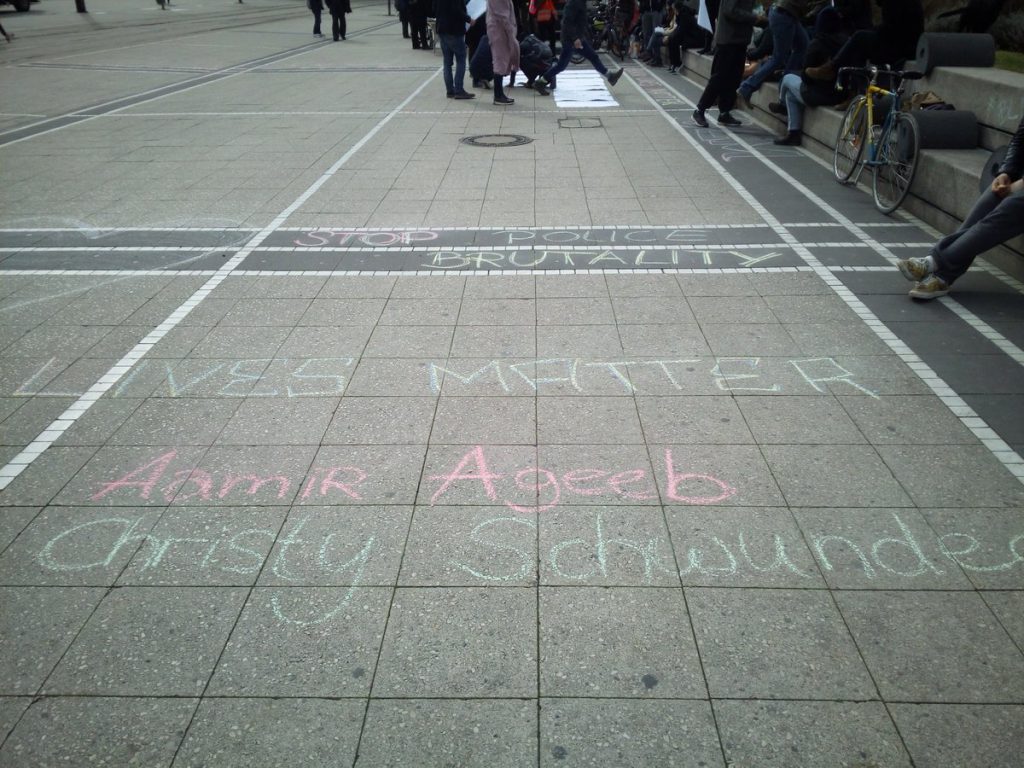 STOP POLICE
BRUTALITY
LIVES MATTER
Aamir Ageeb
Christy Schwunde